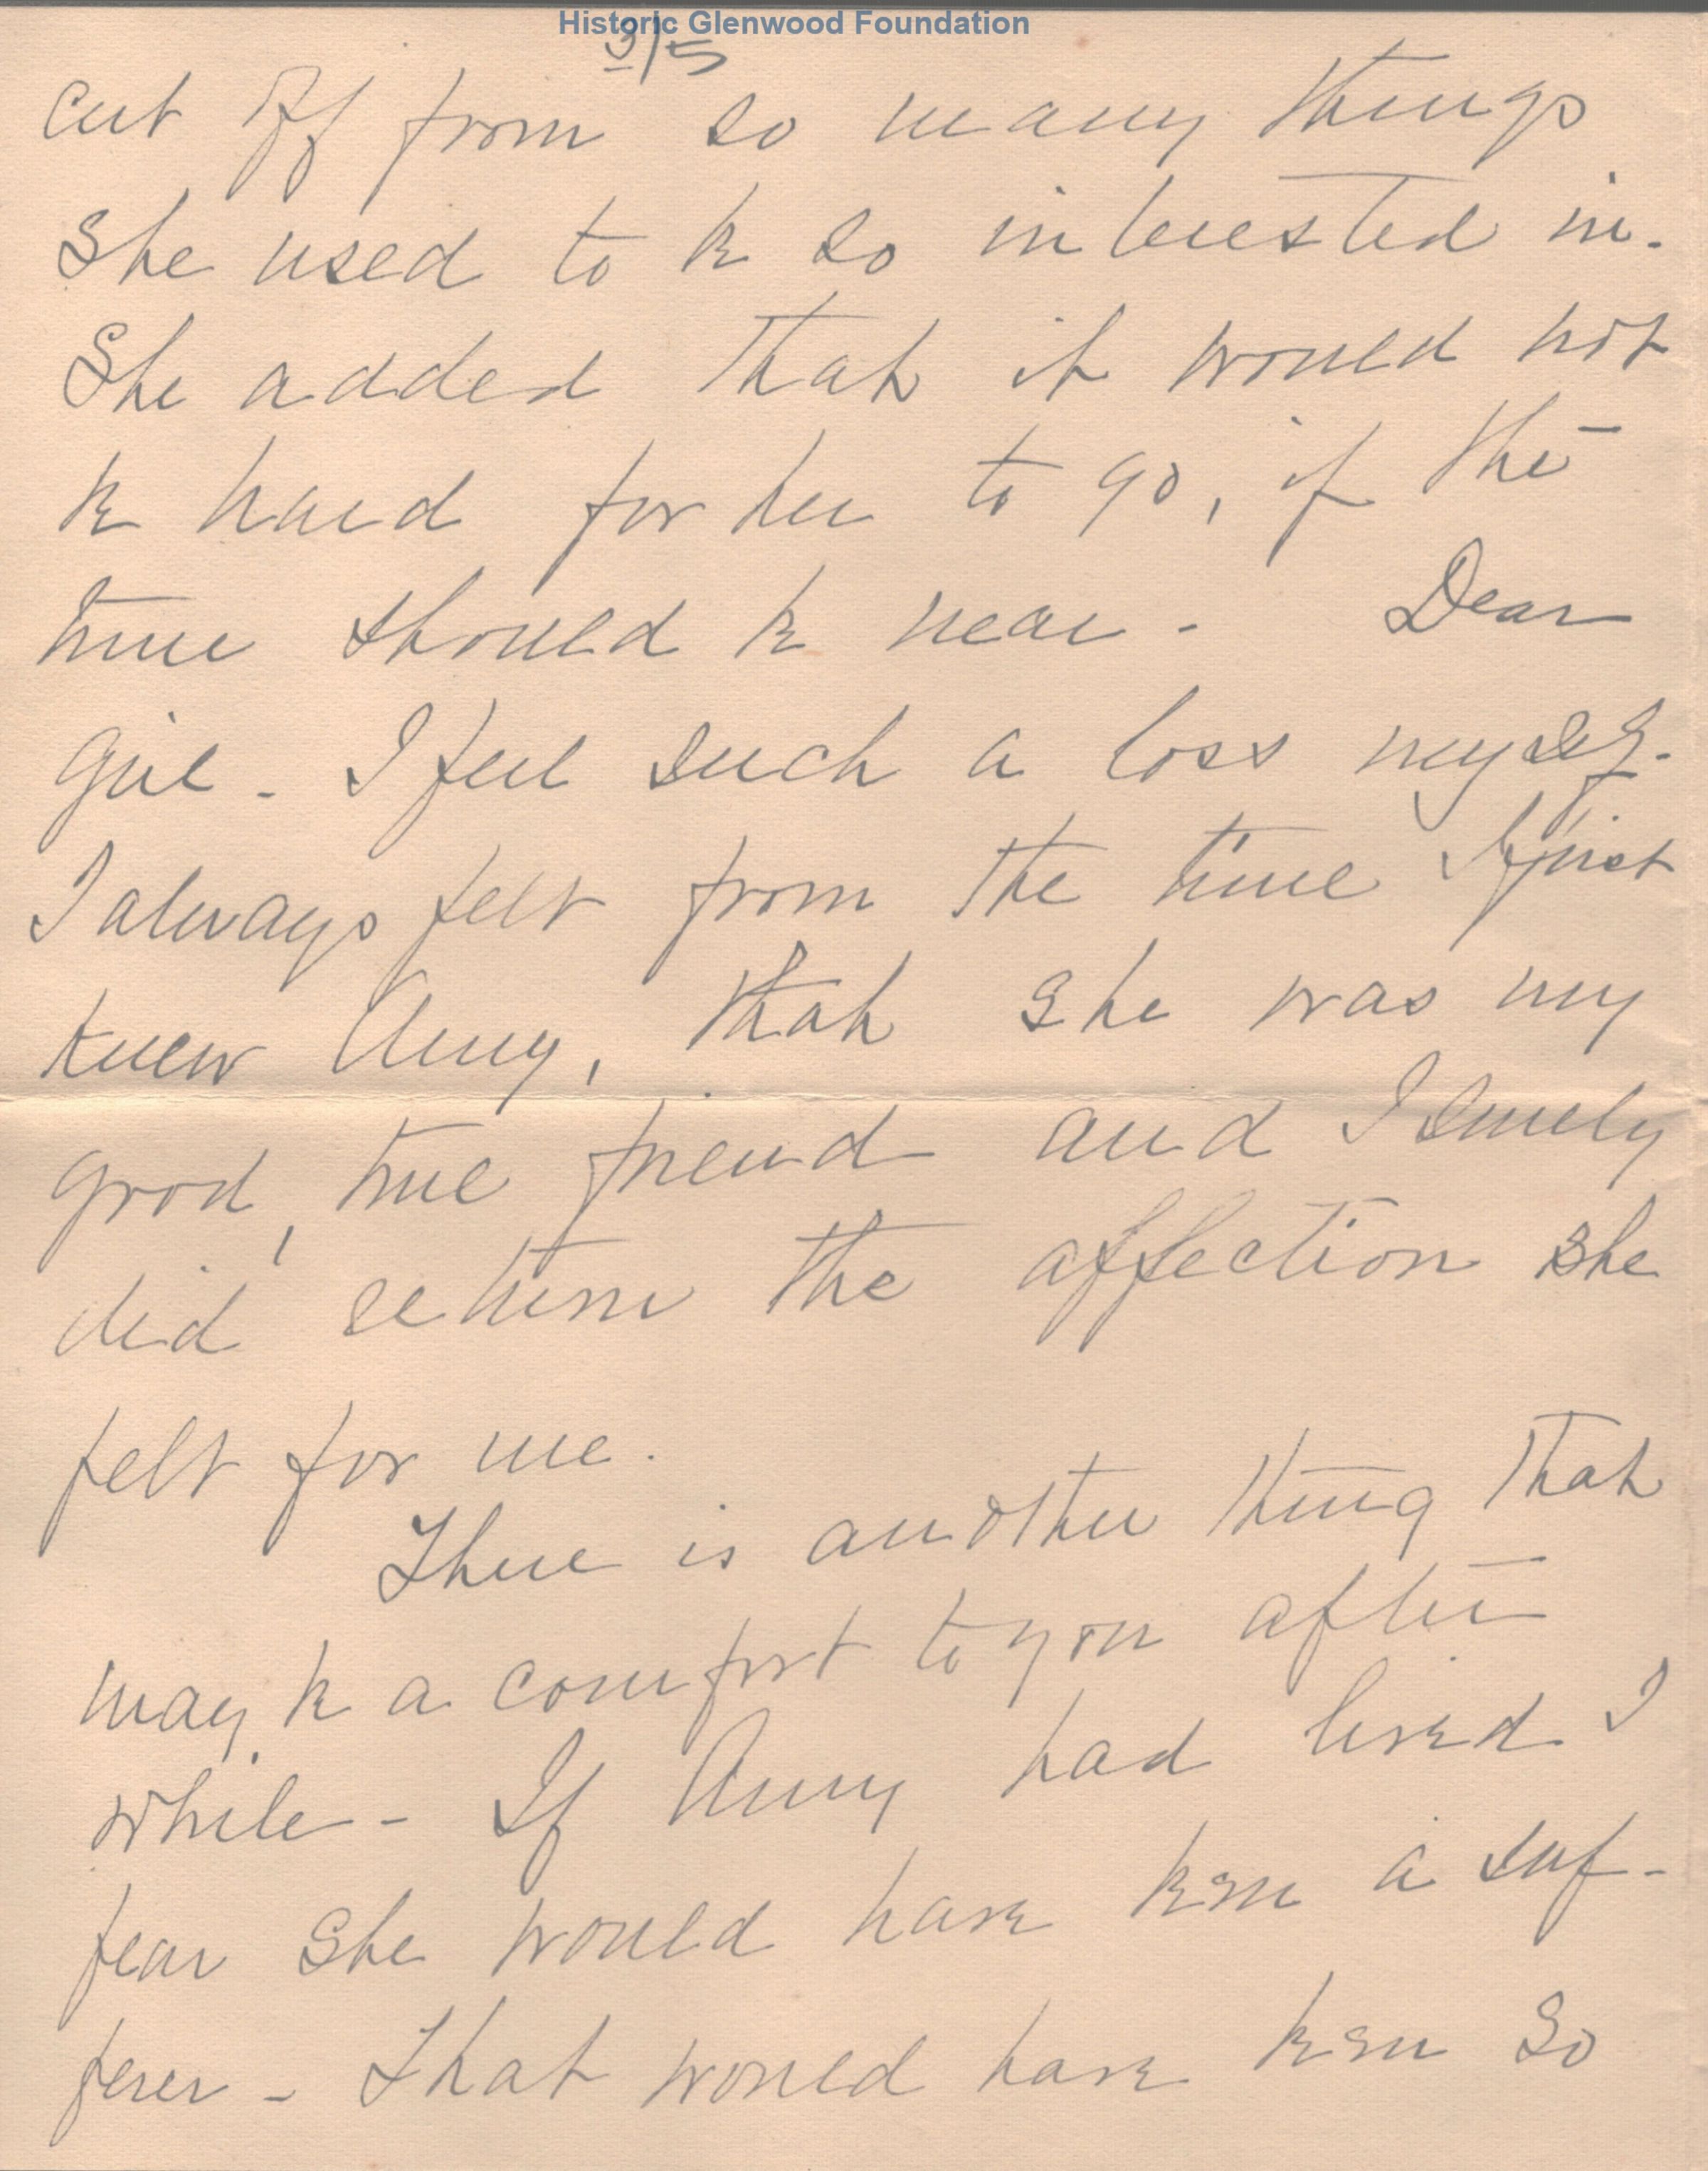 Historic Glenwood Foundation
3/5
cut off from so many things
she used to be so interested in.
She added that it would not
be hard for her to go, if the
time should be near - Dear
girl - I feel such a loss myself.
I always felt from the time I first
knew Amy, that she was my
good, true friend and I surely
did return the affection she
felt for me.
There is another thing that
may be a comfort to you after
while - If Amy had lived I
fear she would have been a suf-
ferer - That would have been so